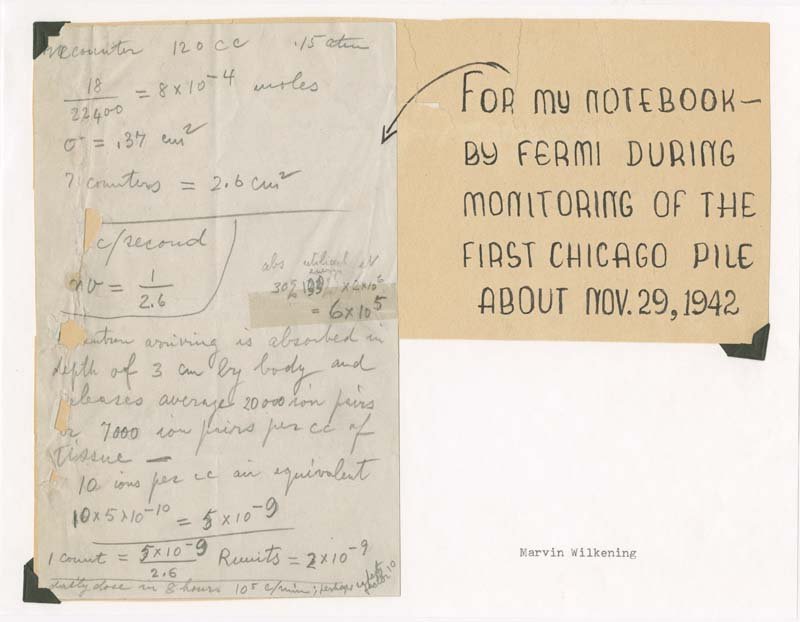 counter 120 cc .15 atm
18
22400
= 8 × 10⁻⁴ moles
σ = .37 cm²
7 counters = 2.6 cm²
c/second
nv = 1
2.6
abs utilized eV
energy
30% × 2×10⁶
= 6×10⁵
neutron arriving is absorbed in
depth of 3 cm by body and
releases average 20000 ion pairs
or 7000 ion pairs per cc of
tissue —
10 ions per cc air equivalent
10×5×10⁻¹⁰ = 5×10⁻⁹
1 count = 5×10⁻⁹ R units = 2×10⁻⁹
2.6
daily dose in 8 hours 10⁵ c/min; perhaps
factor 10
FOR MY NOTEBOOK—
BY FERMI DURING
MONITORING OF THE
FIRST CHICAGO PILE
ABOUT NOV. 29, 1942
Marvin Wilkening